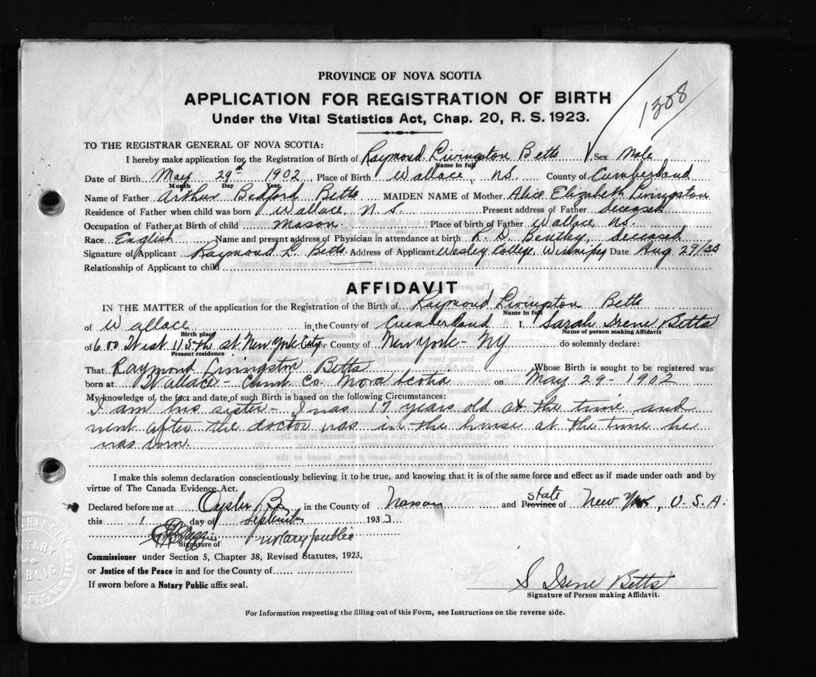 1308
PROVINCE OF NOVA SCOTIA
APPLICATION FOR REGISTRATION OF BIRTH
Under the Vital Statistics Act, Chap. 20, R. S. 1923.
TO THE REGISTRAR GENERAL OF NOVA SCOTIA:
I hereby make application for the Registration of Birth of Raymond Livingston Betts Sex Male
Name in full
Date of Birth May 29th 1902 Place of Birth Wallace, N.S. County of Cumberland
Month Day Year
Name of Father Arthur Bedford Betts MAIDEN NAME of Mother Alice Elizabeth Livingston
Residence of Father when child was born Wallace, N.S. Present address of Father deceased
Occupation of Father at Birth of child mason Place of birth of Father Wallace N.S.
Race English Name and present address of Physician in attendance at birth R. D. Bentley, deceased
Signature of Applicant Raymond L. Betts Address of Applicant Wesley College Winnipeg Date Aug 29/33
Relationship of Applicant to child
AFFIDAVIT
IN THE MATTER of the application for the Registration of the Birth of Raymond Livingston Betts
Name in full
of Wallace in the County of Cumberland I, Sarah Irene Betts
Birth place Name of person making Affidavit
of 600 West 115th st New York City County of New York - NY do solemnly declare:
Present residence
That Raymond Livingston Betts Whose Birth is sought to be registered was
born at Wallace - Cumb Co Nova Scotia on May 29 - 1902
My knowledge of the fact and date of such Birth is based on the following Circumstances:
I am his sister - I was 17 years old at the time and
went after the doctor was in the house at the time he
was born.
I make this solemn declaration conscientiously believing it to be true, and knowing that it is of the same force and effect as if made under oath and by
virtue of The Canada Evidence Act.
Declared before me at Oyster B. in the County of Nassau and state Province of New York, U.S.A.
this 1 day of September 1933
Signature of notary public
Commissioner under Section 5, Chapter 38, Revised Statutes, 1923,
or Justice of the Peace in and for the County of
If sworn before a Notary Public affix seal.
S Irene Betts
Signature of Person making Affidavit.
For Information respecting the filling out of this Form, see Instructions on the reverse side.